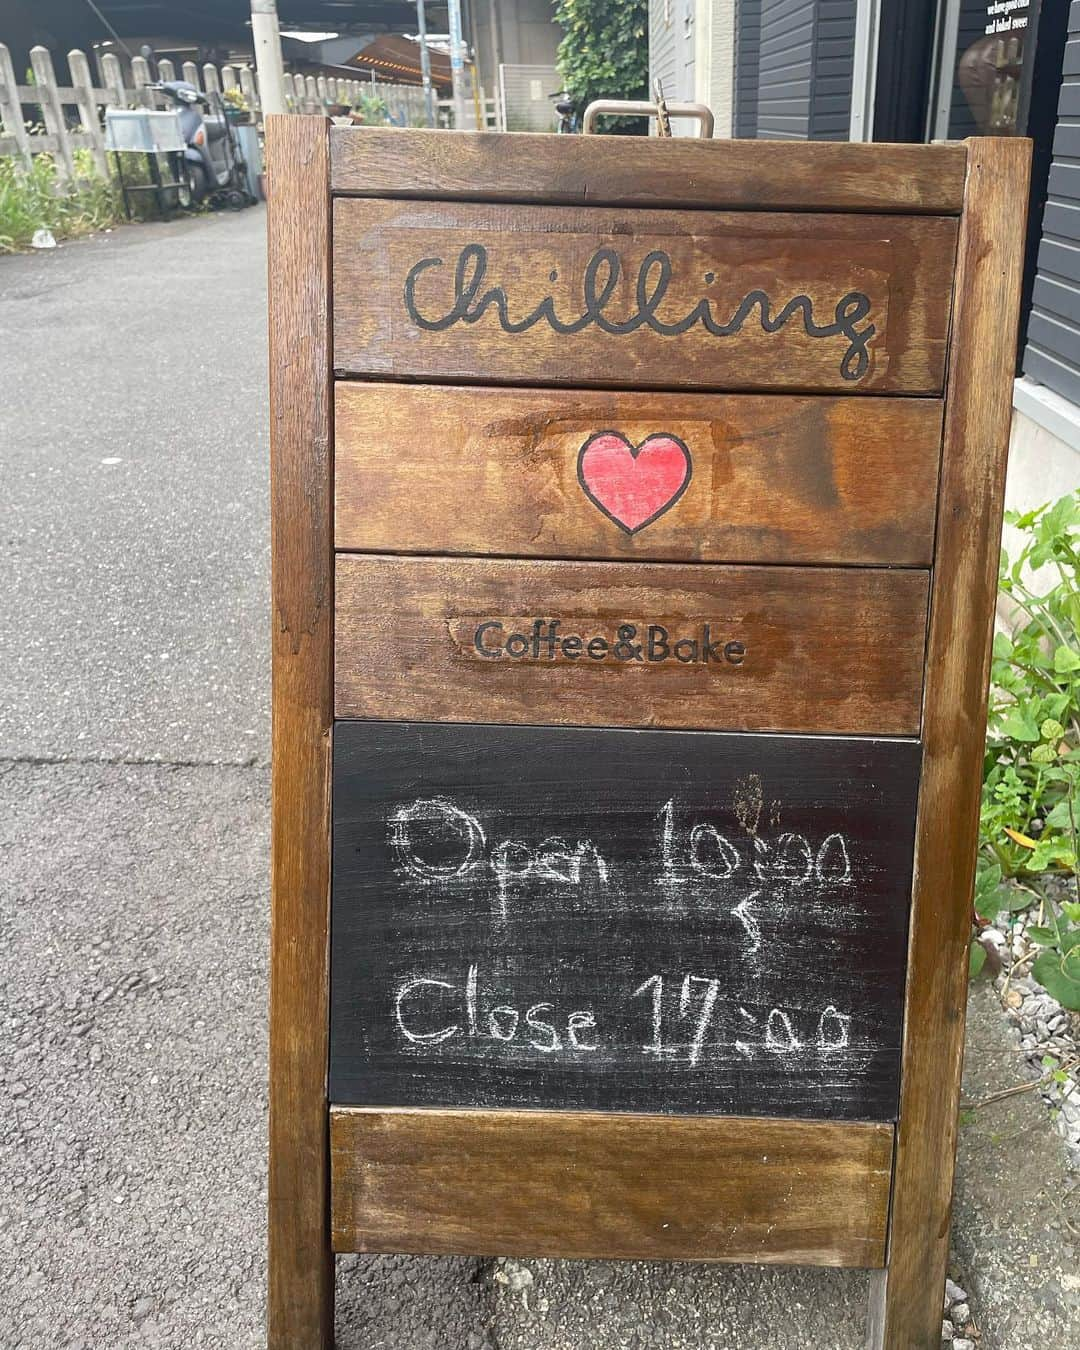 we have good coffee
and baked sweets
Chilling
Coffee&Bake
Open 10:00
Close 17:00